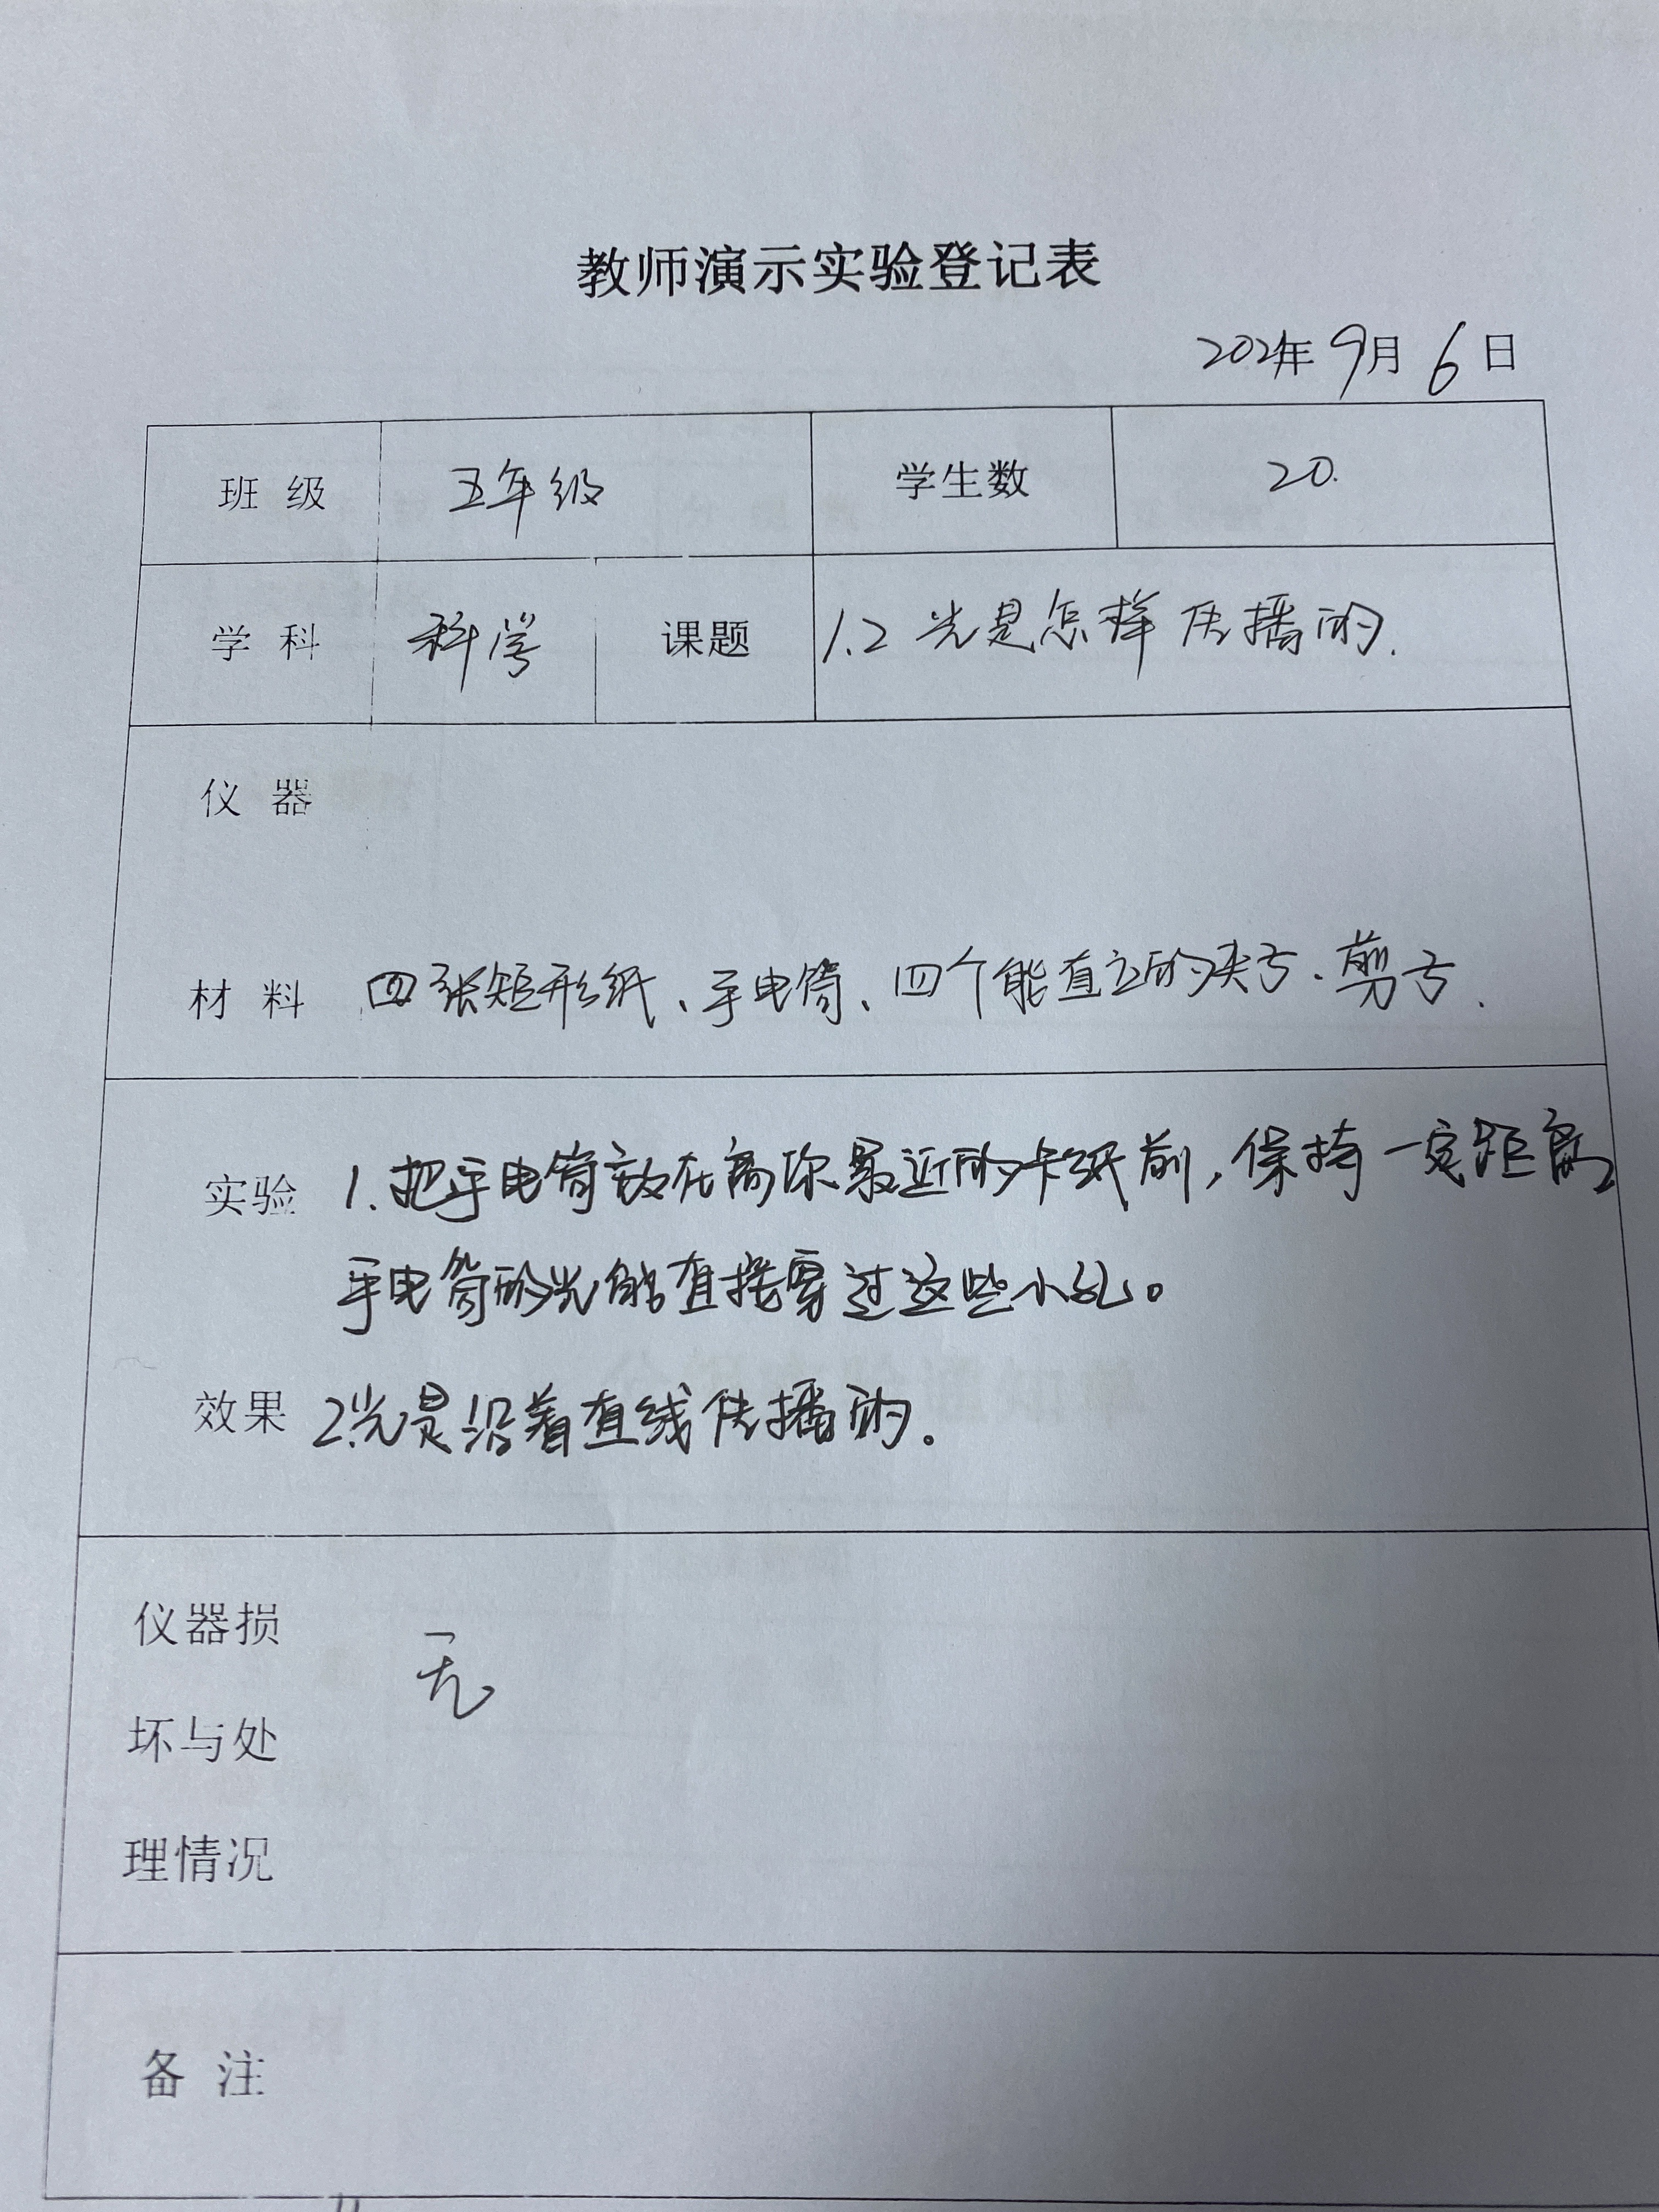 教师演示实验登记表
2021年 9月 6日
班 级 五年级 学生数 20.
学 科 科学 课题 1.2 光是怎样传播的.
仪 器
材 料 四张矩形纸、手电筒、四个能直立的夹子、剪子.
实验 1.把手电筒放在离你最近的卡纸前,保持一定距离
手电筒的光能直接穿过这些小孔。
效果 2.光是沿着直线传播的。
仪器损
无
坏与处
理情况
备 注